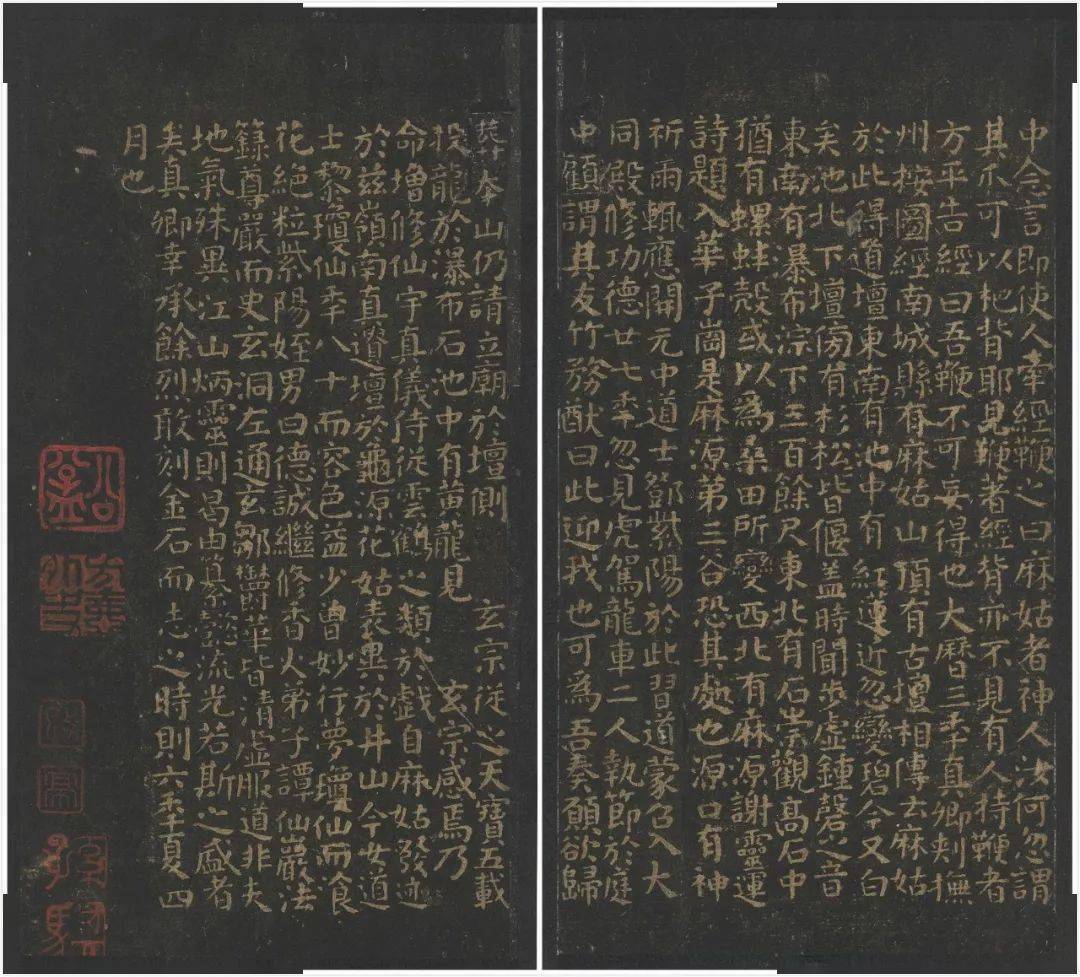 中念言即使人牽經鞭之曰麻姑者神人汝何忽謂
其爪可以杷背耶見鞭著經背亦不見有人持鞭者
方平告經曰吾鞭不可妄得也大曆三年真卿刺撫
州按圖經南城縣有麻姑山頂有古壇相傳云麻姑
於此得道壇東南有池中有紅蓮近忽變碧今又白
矣池北下壇傍有杉松皆偃蓋時聞步虛鍾磬之音
東南有瀑布淙下三百餘尺東北有石崇觀高石中
猶有螺蚌殼或以為桑田所變西北有麻源謝靈運
詩題入華子崗是麻源第三谷恐其處也源口有神
祈雨輒應開元中道士鄧紫陽於此習道蒙召入大
同殿修功德廿七年忽見虎駕龍車二人執節於庭
中顧謂其友竹務猷曰此迎我也可為吾奏願欲歸
葬本山仍請立廟於壇側 玄宗從之天寶五載
投龍於瀑布石池中有黃龍見 玄宗感焉乃
命增修仙宇真儀侍從雲鶴之類於戲自麻姑發迹
於茲嶺南真遺壇於龜源花姑表異於井山今女道
士黎瓊仙年八十而容色益少曾妙行夢瓊仙而飡
花絕粒紫陽姪男曰德誠繼修香火弟子譚仙巖法
籙尊嚴而史玄洞左通玄鄒鬱華皆清虛服道非夫
地氣殊異江山炳靈則曷由纂懿流光若斯之盛者
矣真卿幸承餘烈敢刻金石而志之時則六年夏四
月也